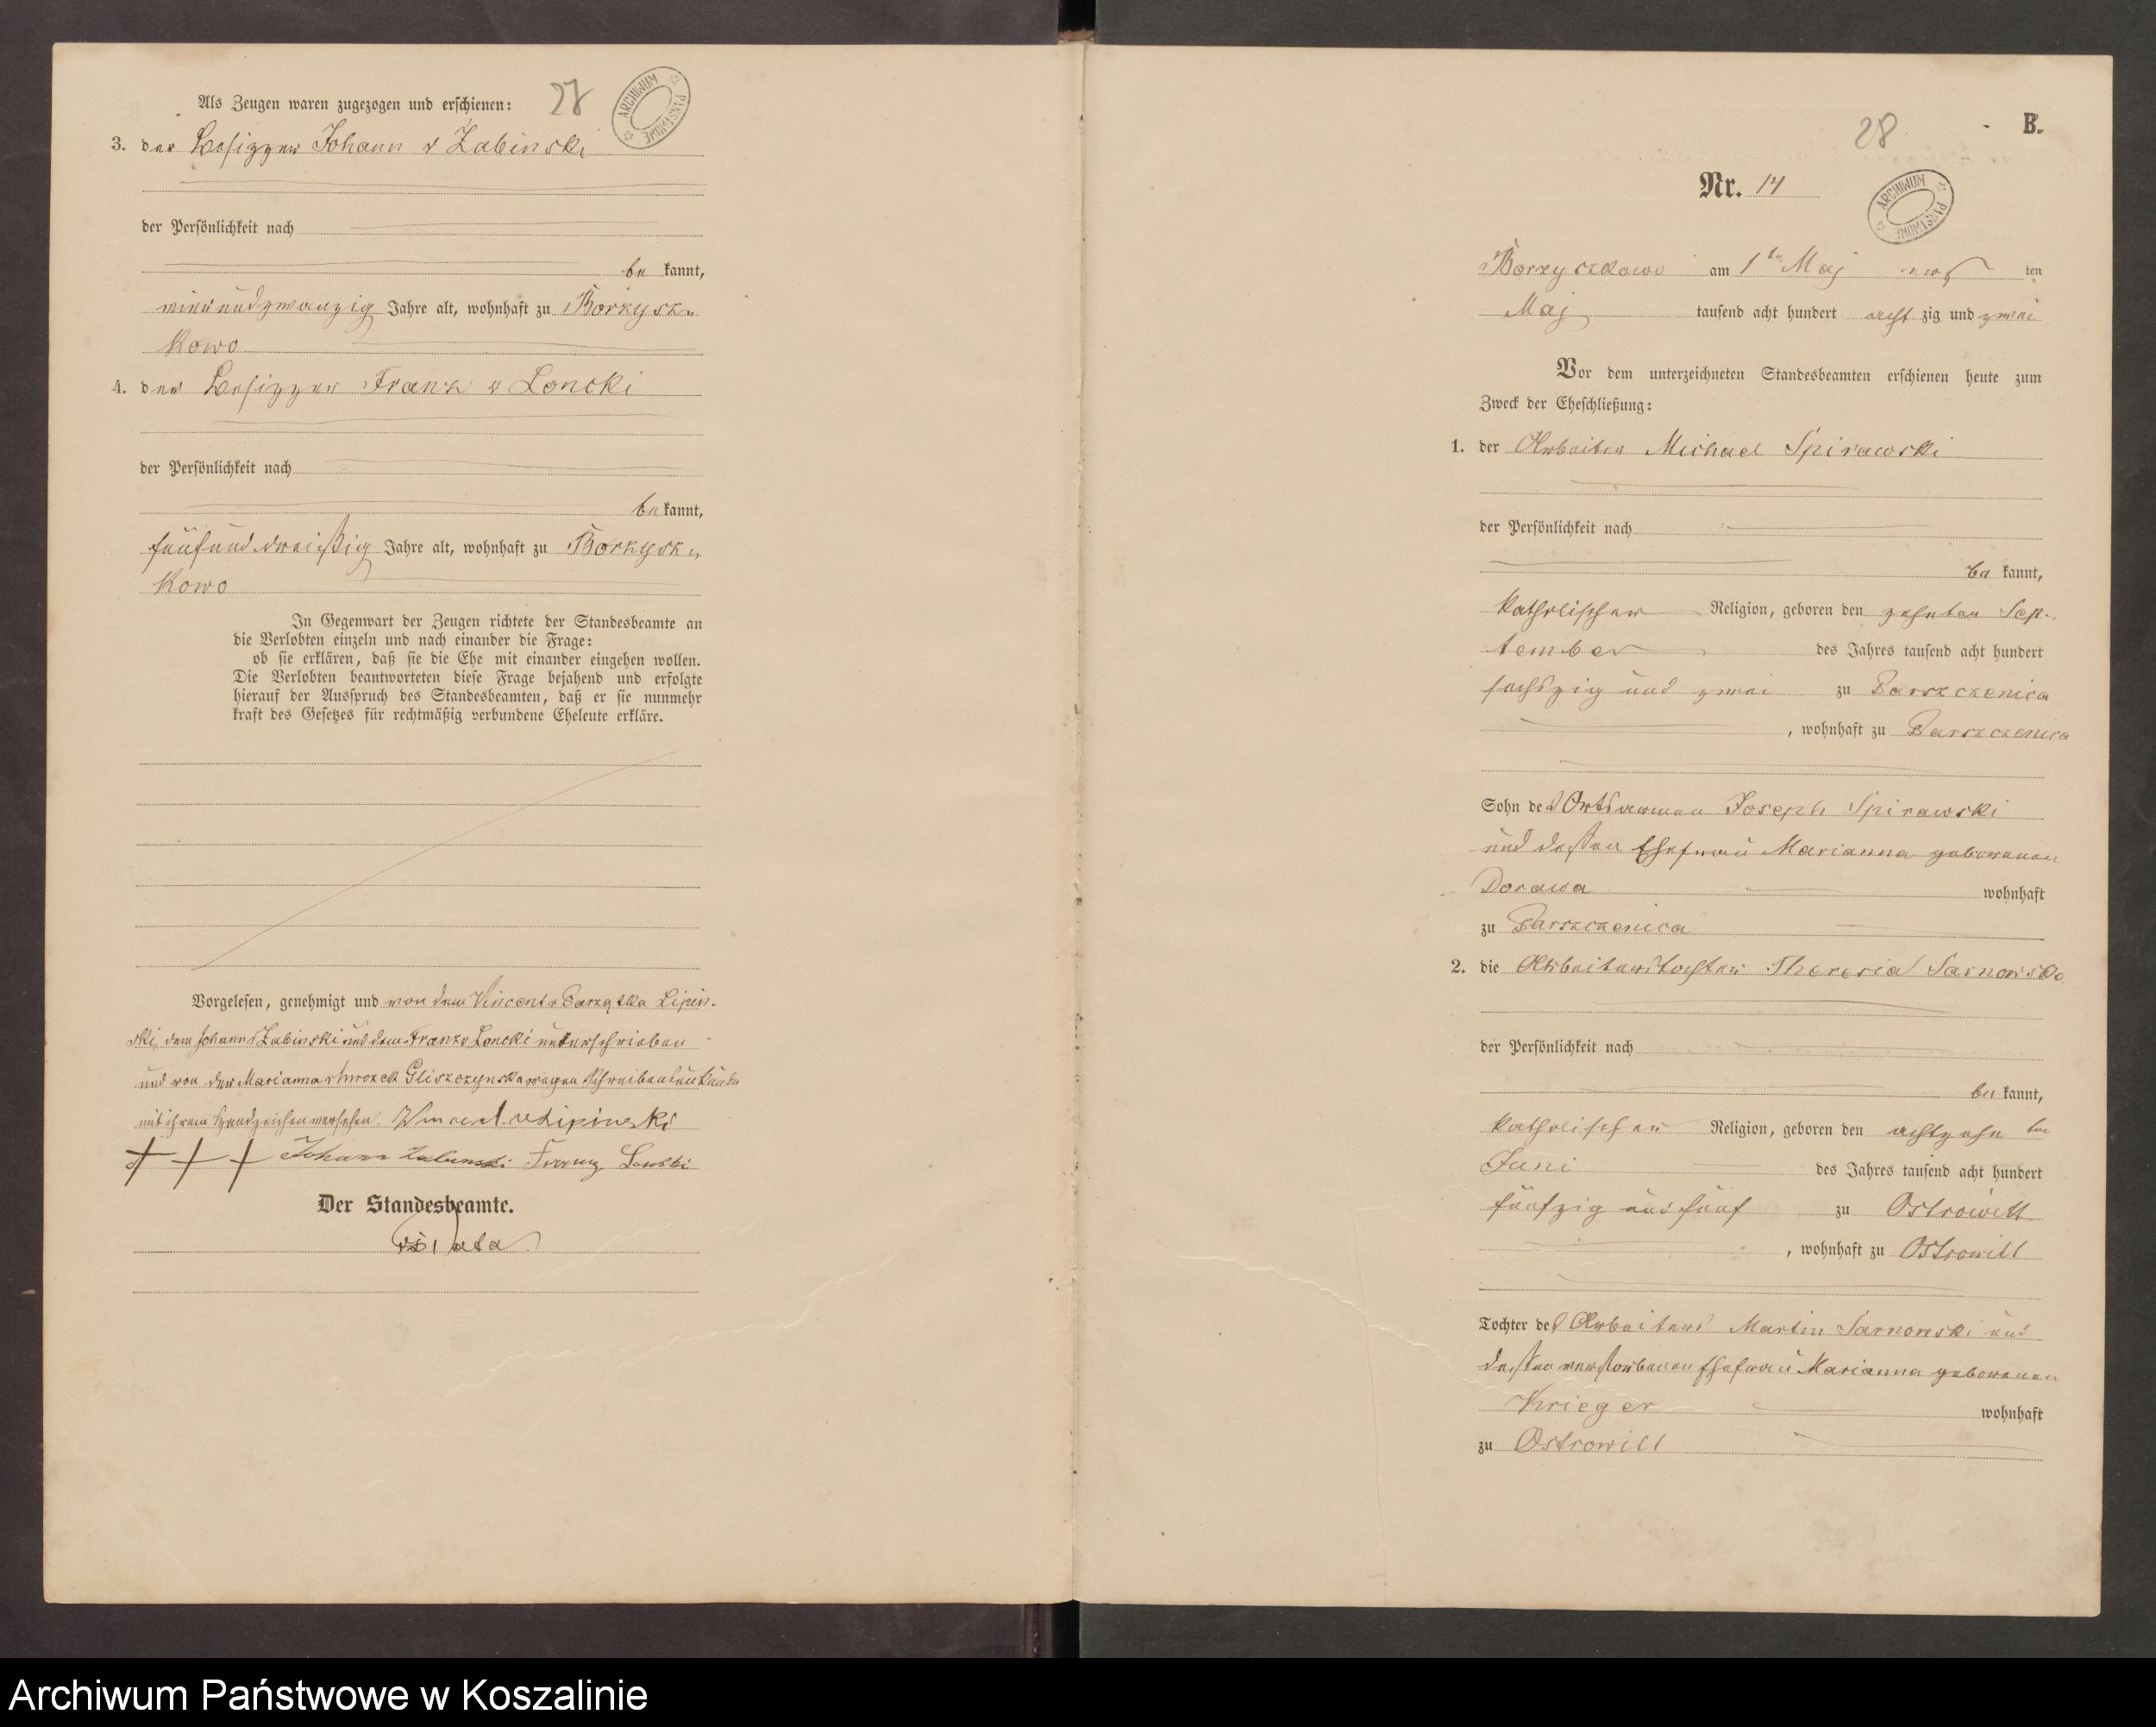 Als Zeugen waren zugezogen und erschienen:
27
ARCHIWUM PAŃSTWOWE
3. der Besitzer Johann v Zabinski
der Persönlichkeit nach
be kannt,
vierundzwanzig Jahre alt, wohnhaft zu Borzysz„
kowo
4. der Besitzer Franz v Loncki
der Persönlichkeit nach
be kannt,
fünfunddreißig Jahre alt, wohnhaft zu Borzysz„
kowo
In Gegenwart der Zeugen richtete der Standesbeamte an
die Verlobten einzeln und nach einander die Frage:
ob sie erklären, daß sie die Ehe mit einander eingehen wollen.
Die Verlobten beantworteten diese Frage bejahend und erfolgte
hierauf der Ausspruch des Standesbeamten, daß er sie nunmehr
kraft des Gesetzes für rechtmäßig verbundene Eheleute erkläre.
Vorgelesen, genehmigt und von dem Vincent v Lipin-
ski, dem Johann v Zabinski und dem Franz v Loncki unterschrieben
und von der Marianna v Mrozek Gliszczynska wegen Schreibensunkunde
mit ihrem Handzeichen versehen. Vincent v Lipinski
+ + + Johann Zabinski Franz Loncki
Der Standesbeamte.
28
B.
Nr. 14
ARCHIWUM PAŃSTWOWE
Borzyszkowo am 1ten Maj ten
Maj tausend acht hundert acht zig und zwei
Vor dem unterzeichneten Standesbeamten erschienen heute zum
Zweck der Eheschließung:
1. der Arbeiter Michael Spirawski
der Persönlichkeit nach
be kannt,
katholischer Religion, geboren den zehnten Sep-
tember des Jahres tausend acht hundert
sechszig und zwei zu Barszczenica
, wohnhaft zu Barszczenica
Sohn des Ortsarmen Joseph Spirawski
und dessen Ehefrau Marianna geborenen
Dorawa wohnhaft
zu Barszczenica
2. die Arbeiterstochter Theresia Sarnowska
der Persönlichkeit nach
be kannt,
katholischen Religion, geboren den achtzehn ten
Juni des Jahres tausend acht hundert
fünfzig und fünf zu Ostrowitt
, wohnhaft zu Ostrowitt
Tochter des Arbeiters Martin Sarnowski und
dessen verstorbenen Ehefrau Marianna geborenen
Krieger wohnhaft
zu Ostrowitt
Archiwum Państwowe w Koszalinie